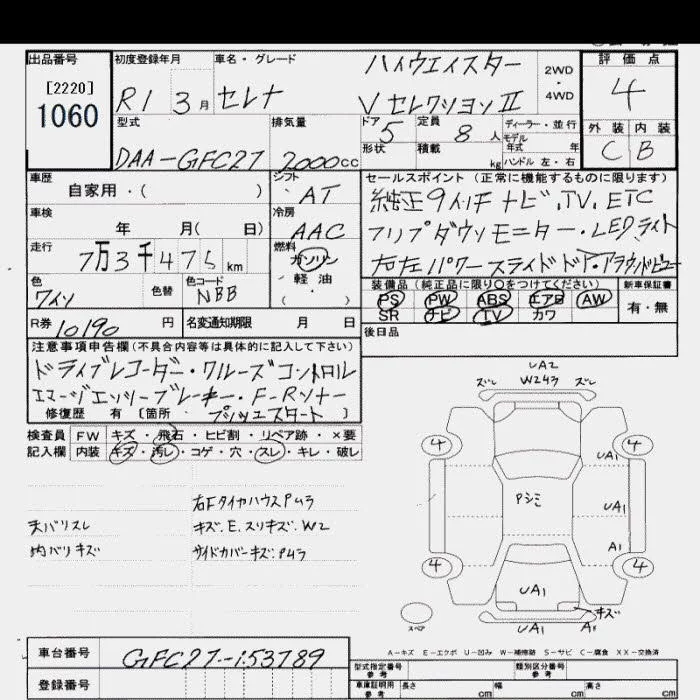 出品番号 初度登録年月 車名・グレード ハイウエイスター 2WD・4WD 評価点
[2220]
1060 R1 3月 セレナ VセレクションⅡ 4
型式 排気量 ドア 5 定員 8人 ディーラー・並行 外装 内装
モデル年式 年
DAA-GFC27 2000cc 形状 積載 kg ハンドル 左・右 C B
車歴 シフト セールスポイント (正常に機能するものに限ります)
自家用・( ) AT 純正9インチナビ.TV.ETC
車検 冷房 フリップダウンモニター・LEDライト
年 月( 日) AAC 右左パワースライドドア・アラウンドビュー
走行 燃料 装備品 (純正品に限り○をつけてください) 新車保証書
7万3千475km ガソリン PS PW ABS エアB AW 有・無
色 色替 色コード 軽油 SR ナビ TV カワ
ワイン NBB ・( )
R券 10190円 名変通知期限 月 日 後日品
注意事項申告欄 (不具合内容等は具体的に記入して下さい)
ドライブレコーダー・クルーズコントロル
エマージエンシーブレーキ・F-Rソナー
修復歴 有 [箇所 プッシュスタート ]
検査員 FW キズ・飛石・ヒビ割・リペア跡・×要
記入欄 内装 キズ・汚レ・コゲ・穴・スレ・キレ・破レ
右Fタイヤハウスアムラ
天バリスレ キズ.E.スリキズ.W2
内バリキズ サイドカバーキズ.Pムラ
UA2
ズレ W243 ズレ
4 4
UA1
Pシミ
UA1
A1
4 4
UA1
キズ
スペア UA1 A
A-キズ E-エクボ U-凹み W-補修跡 S-サビ C-腐食 XX-交換済
車台番号 GFC27-153789 型式指定番号 参考 類別区分番号 参考
登録番号 車庫証明用 参考 長さ cm 幅 cm 高さ cm